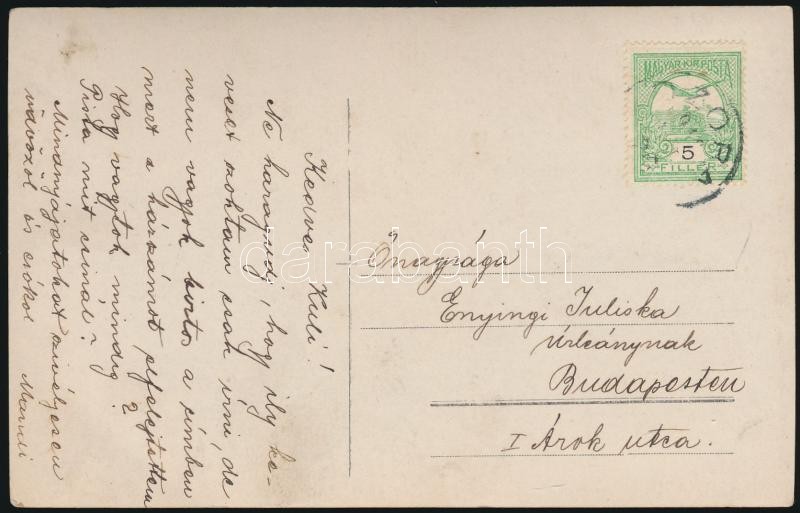 Kedves Kuli!
Ne haragudj, hogy ily ke-
veset szoktam csak írni, de
nem vagyok biztos a címben
mert a házszámot elfelejtettem
Hogy vagytok mindig?
Pista mit csinál?
Mindnyájatokat szívélyesen
üdvözöl és csókol Mamli
MAGYAR KIR. POSTA
5
FILLÉR
Önagysága
Enyingi Juliska
úrleánynak
Budapesten
I Árok utca.
darabanth